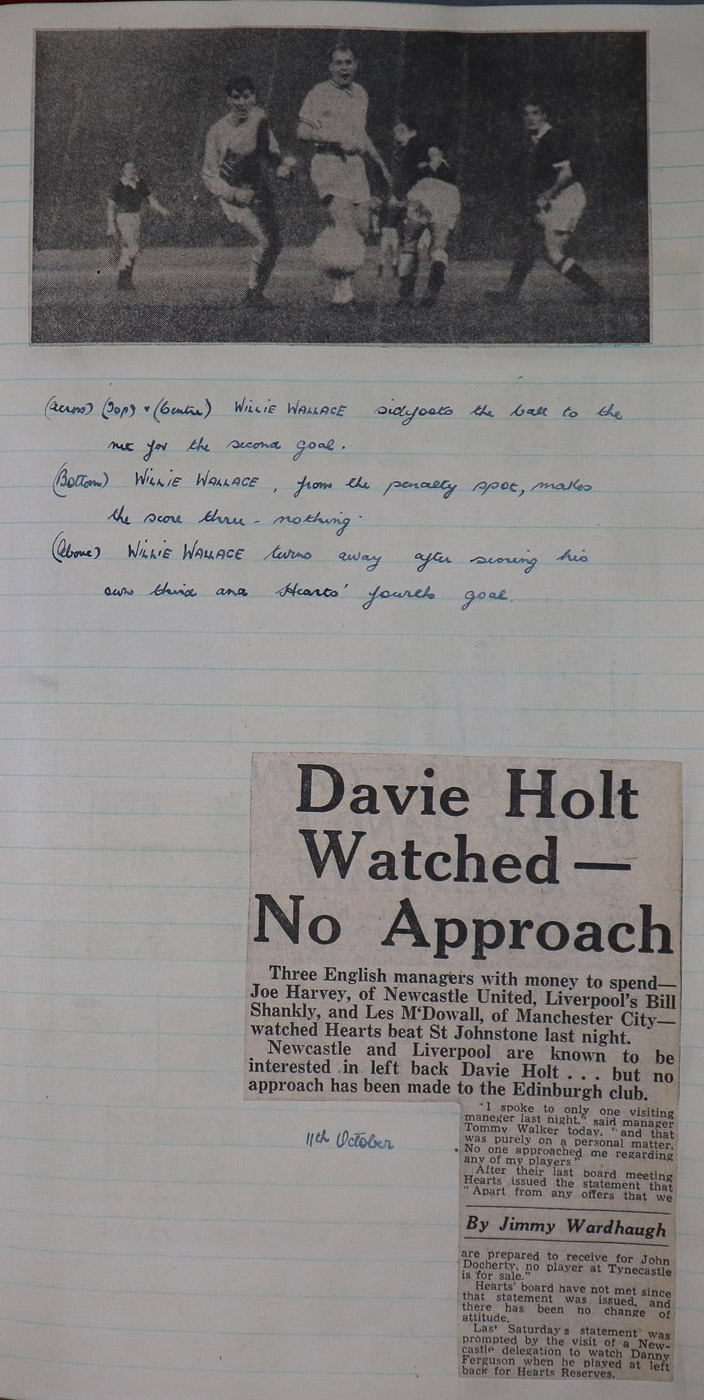 (Across) (Top) & (Centre) WILLIE WALLACE sidefoots the ball to the
net for the second goal.
(Bottom) WILLIE WALLACE, from the penalty spot, makes
the score three-nothing.
(Above) WILLIE WALLACE turns away after scoring his
own third and Hearts' fourth goal.
Davie Holt
Watched —
No Approach
Three English managers with money to spend—
Joe Harvey, of Newcastle United, Liverpool's Bill
Shankly, and Les M'Dowall, of Manchester City—
watched Hearts beat St Johnstone last night.
Newcastle and Liverpool are known to be
interested in left back Davie Holt . . . but no
approach has been made to the Edinburgh club.
11th October
"I spoke to only one visiting
maneger last night," said manager
Tommy Walker today, "and that
was purely on a personal matter.
No one approached me regarding
any of my players"
After their last board meeting
Hearts issued the statement that
"Apart from any offers that we
By Jimmy Wardhaugh
are prepared to receive for John
Docherty, no player at Tynecastle
is for sale."
Hearts' board have not met since
that statement was issued, and
there has been no change of
attitude.
Las' Saturday's statement was
prompted by the visit of a New-
castle delegation to watch Danny
Ferguson when he played at left
back for Hearts Reserves.